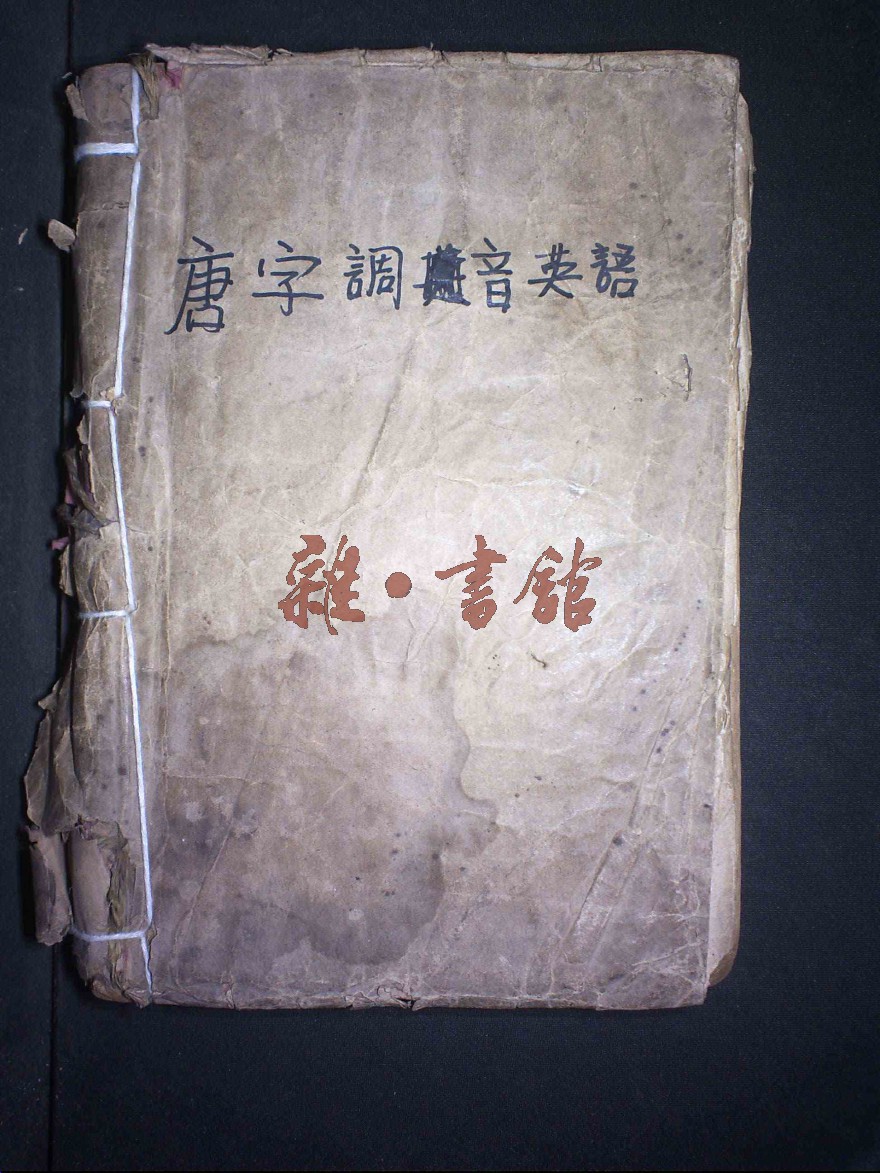 唐字調音英語
雜·書館